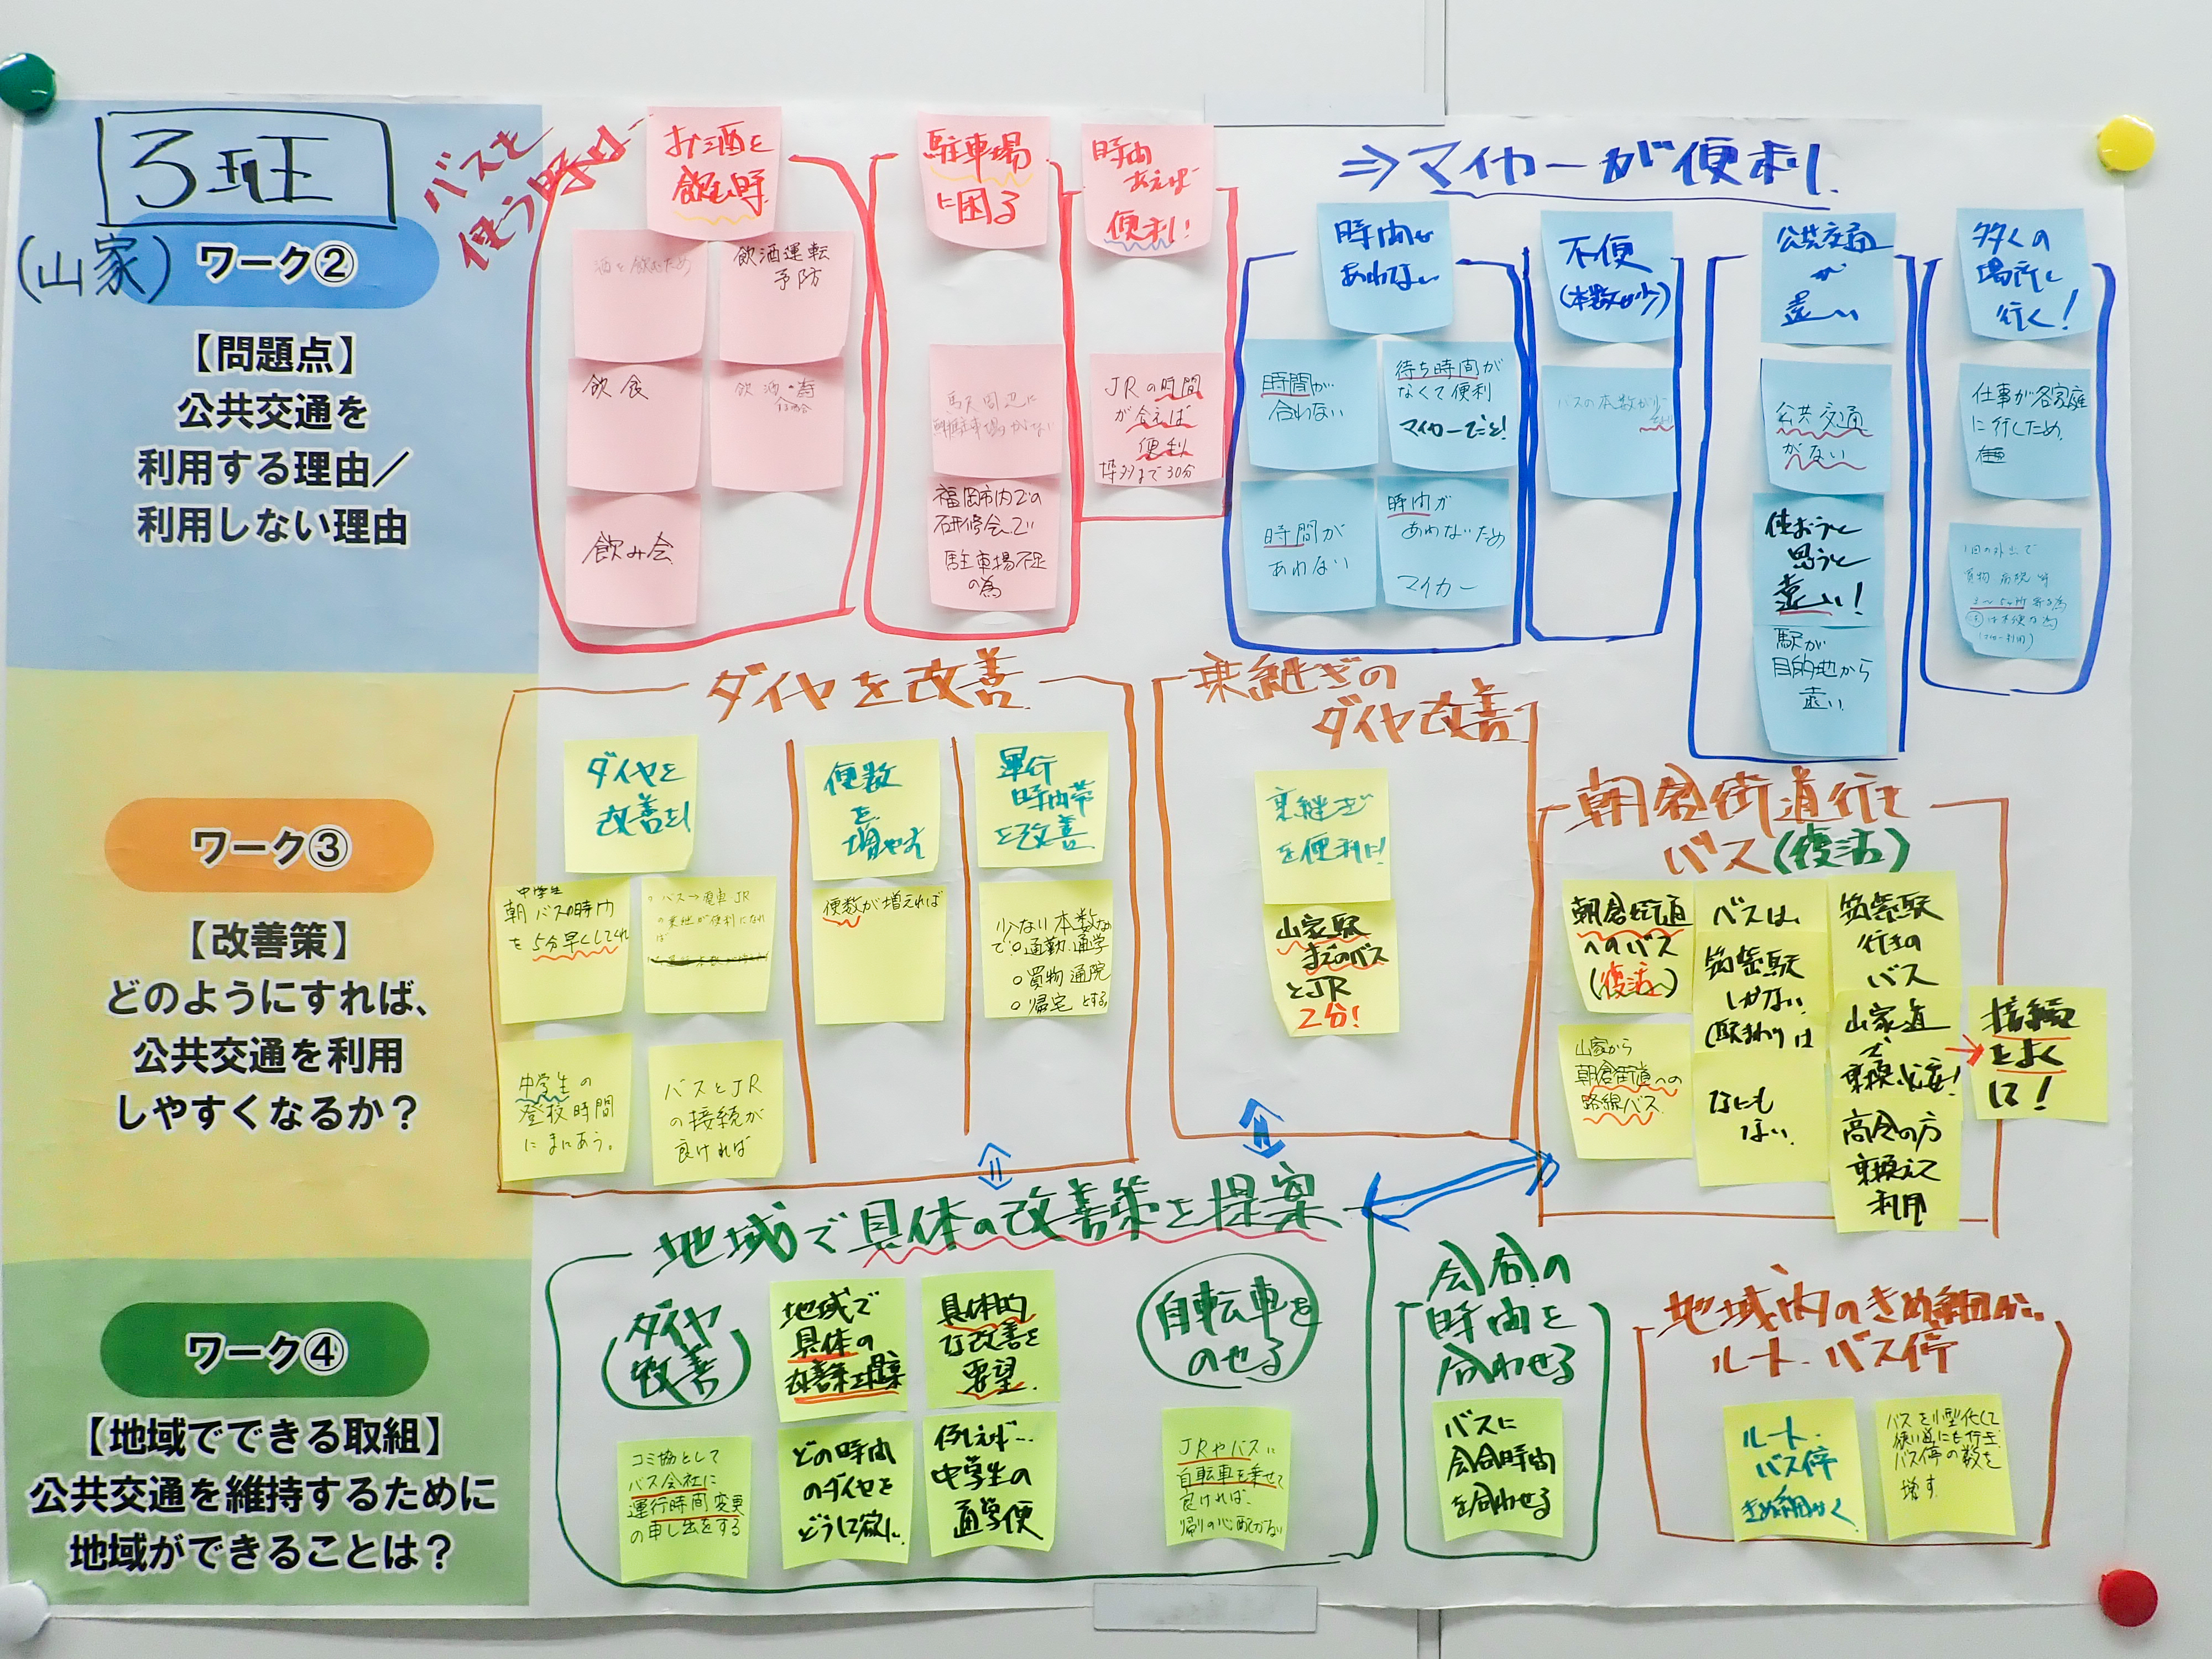 3班
(山家)
ワーク②
【問題点】
公共交通を
利用する理由／
利用しない理由
バスを
使う時は…
お酒を
飲む時
酒を飲むため
飲酒運転
予防
飲食
飲み会
駐車場
に困る
駅周辺に
福岡市内での
研修会で
駐車場不足
の為
時間
あえば
便利!
JRの時間
が合えば
便利
⇒マイカーが便利
時間が
あわない
時間が
合わない
待ち時間が
なくて便利
マイカーでこと!
時間が
あわない
時間が
あわないため
マイカー
不便
(本数が少)
バスの本数が少
公共交通
が
遠い
公共交通
がない
使おうと
思うと
遠い!
駅が
目的地から
遠い
多くの
場所に
行く!
仕事が各家庭
に行くため、
1回の外出で
買物 病院 等
ワーク③
【改善策】
どのようにすれば、
公共交通を利用
しやすくなるか？
ダイヤを改善
ダイヤを
改善を!
中学生
朝バスの時間
を5分早くしてくれ
○バス→電車・JR
の乗継が便利になれ
ば
中学生の
登校時間
にまにあう。
バスとJR
の接続が
良ければ
便数
を
増やす
便数が増えれば
運行
時間帯
を改善
少ない本数なの
で○通勤.通学
○買物 通院
○帰宅 とする
乗継ぎの
ダイヤ改善
乗継ぎ
を便利に!
山家駅
までのバス
とJR
2分!
朝倉街道行き
バス(復活)
朝倉街道
へのバス
(復活へ)
山家から
朝倉街道への
路線バス
バスは、
筑紫駅
しかない
(駅まわりは
なにも
ない.
筑紫駅
行きの
バス
山家道
で
乗換必要!
高令の方
乗換えて
利用
接続
をよく
に!
ワーク④
【地域でできる取組】
公共交通を維持するために
地域ができることは？
地域で具体の改善策を提案
ダイヤ
改善
コミ協として
バス会社に
運行時間変更
の申し出をする
地域で
具体の
改善策を提案
どの時間
のダイヤを
どうして欲しい
具体的
な改善を
要望.
例えば…
中学生の
通学便
自転車を
のせる
JRやバスに
自転車を乗せて
良ければ、
帰りの心配がない
会合の
時間を
合わせる
バスに
会合時間
を合わせる
地域内のきめ細かい
ルート.バス停
ルート.
バス停
きめ細かく
バスを小型化して
狭い道にも行き
バス停の数を
増す.